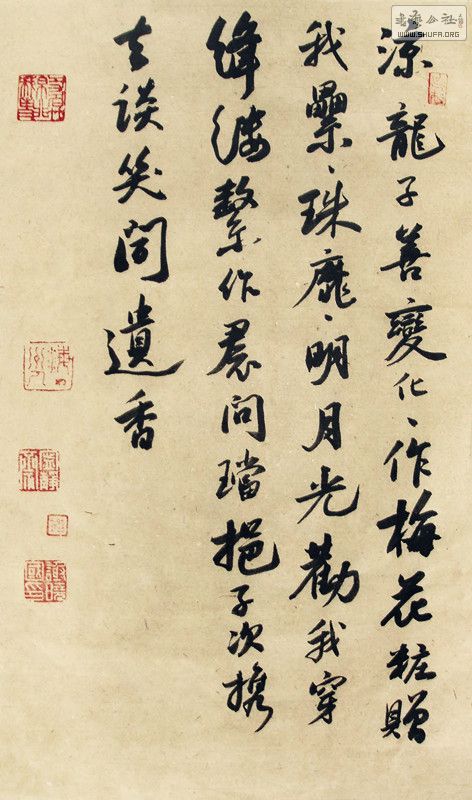 書法公社
WWW.SHUFA.ORG
涼龍子善變化〻作梅花粧贈
我纍〻珠靡〻明月光勸我穿
絳縷繫作裠間璫挹子以攜
去談笑聞遺香